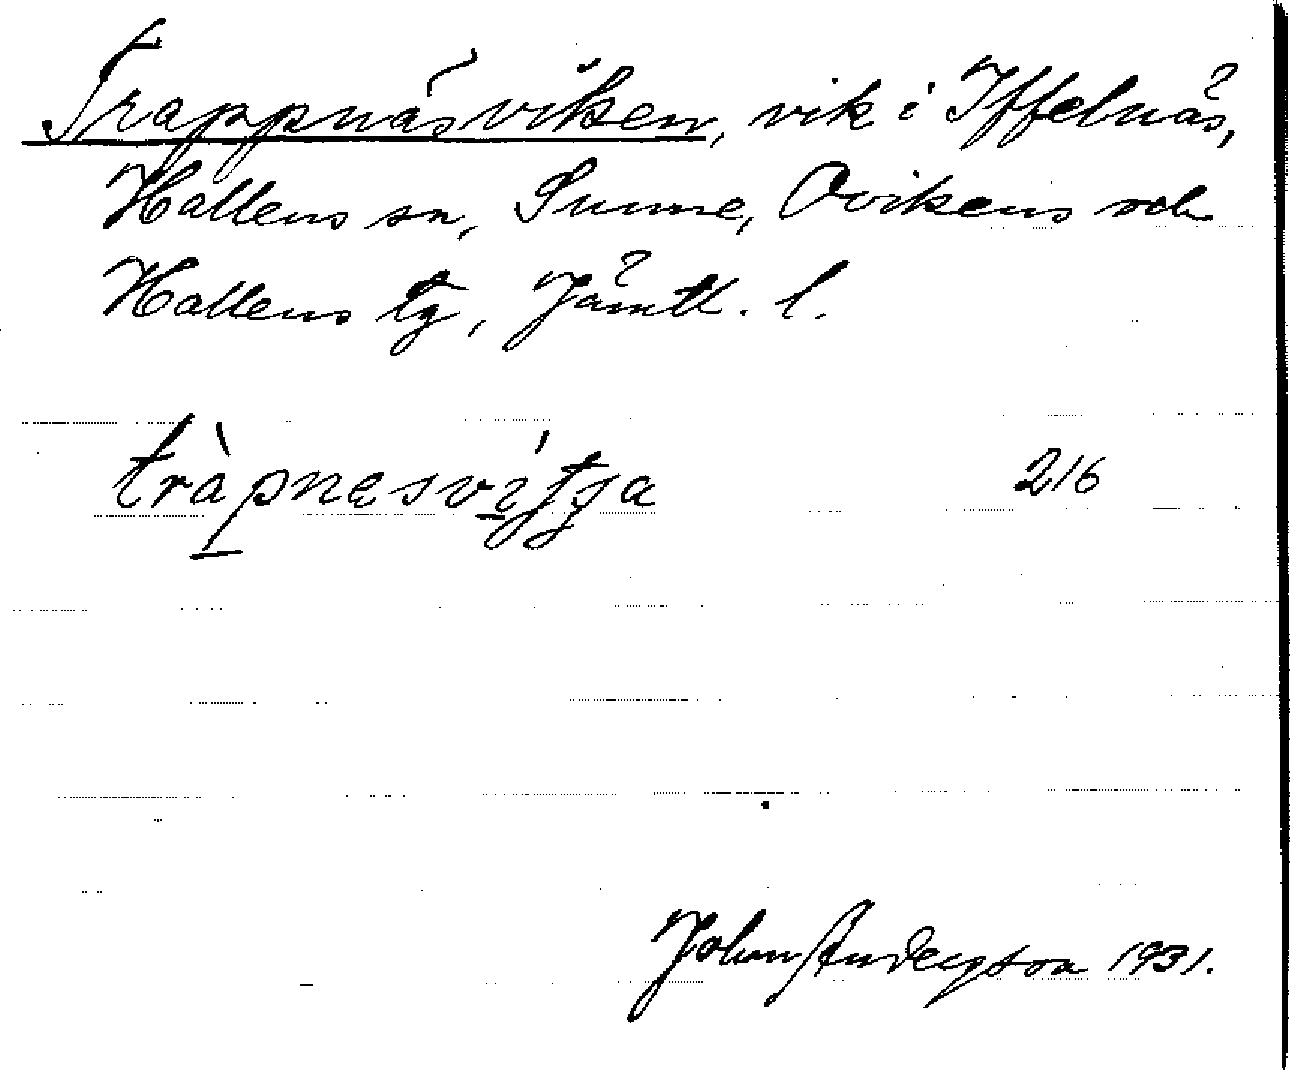 Trappnäsviken, vik i Yffelnäs,
Hallens sn, Sunne, Ovikens och
Hallens tg, Jämtl. l.
tràpnesvı́tja 216
John Anderson 1931.